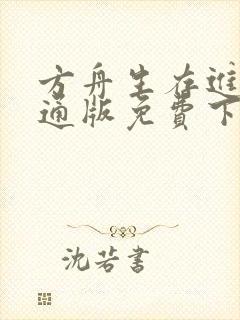 方舟生存進
通版免費下
沈若書